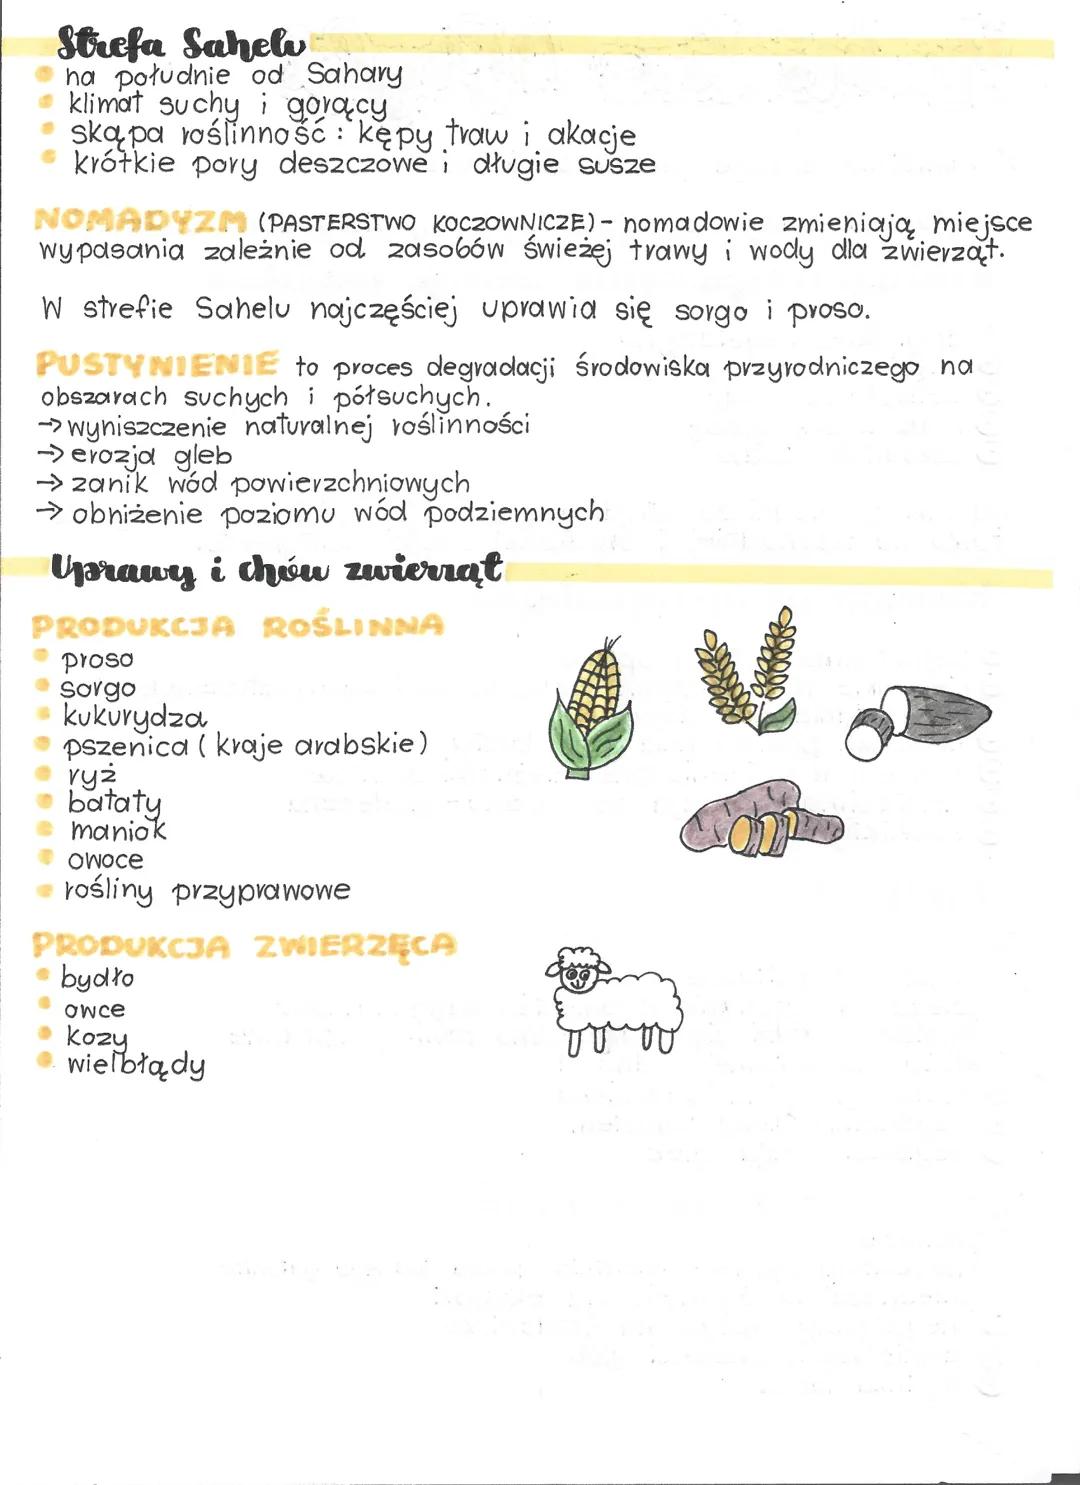 Strefa Sahelu
na południe od Sahary
klimat suchy i gorący
skąpa roślinność: kępy traw i akacje
krótkie pory deszczowe i długie susze
NOMADYZM (PASTERSTWO KOCZOWNICZE) - nomadowie zmieniają miejsce
wypasania zależnie od zasobów świeżej trawy i wody dla zwierząt.
W strefie Sahelu najczęściej uprawia się sorgo i proso.
PUSTYNIENIE to proces degradacji środowiska przyrodniczego na
obszarach suchych i półsuchych.
→ wyniszczenie naturalnej roślinności
→ erozja gleb
→ zanik wód powierzchniowych
→ obniżenie poziomu wód podziemnych
Uprawy i chów zwierząt
PRODUKCJA ROŚLINNA
proso
sorgo
kukurydza
pszenica (kraje arabskie)
ryż
bataty
maniok
owoce
rośliny przyprawowe
PRODUKCJA ZWIERZĘCA
bydło
owce
kozy
wielbłądy